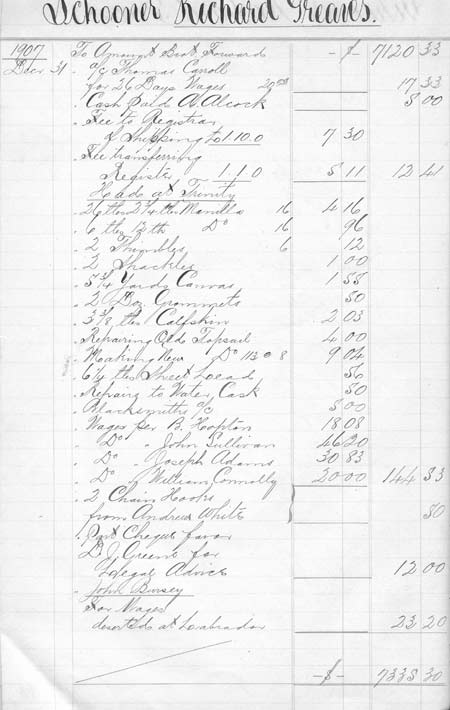 Schooner Richard Greaves.
1907 To Amount Brot Forward - $ - 7120 33
Decr 31 " a/c Thomas Carroll
for 26 Days Wages 20.00 17 33
" Cash paid A. Alcock 5 00
" Fee to Registrar
of Shipping £1.10.0 7 30
" Fee transferring
Register 1 1 0 5 11 12 41
Made at Trinity
" 26 lbs 2 1/4 Manilla 16 4 16
" 6 lbs Do 16 96
" 2 Thimbles 6 12
" 2 Shackles 1 00
" Yards Canvas 1 55
" 2 Doz. Grommets 50
" 3 3/8 lbs Calfskin 2 03
" Repairing Old Topsail 4 00
" Making New Do 113 @ 8 9 04
" 6 1/4 lbs Sheet Lead 56
" Repairs to Water Cask 50
" Blacksmiths a/c 5 00
" Wages per B. Hoopton 18 08
" Do " John Sullivan 46 20
" Do " Joseph Adams 30 83
" Do " William Connolly 20 00 144 53
" 2 Chain Hooks
from Andrew White 50
" Cheque favor
D. J. Greene for
Legal Advice 12 00
John Bursey
For Wages
deserted at Labrador 23 20
- $ - 7335 30